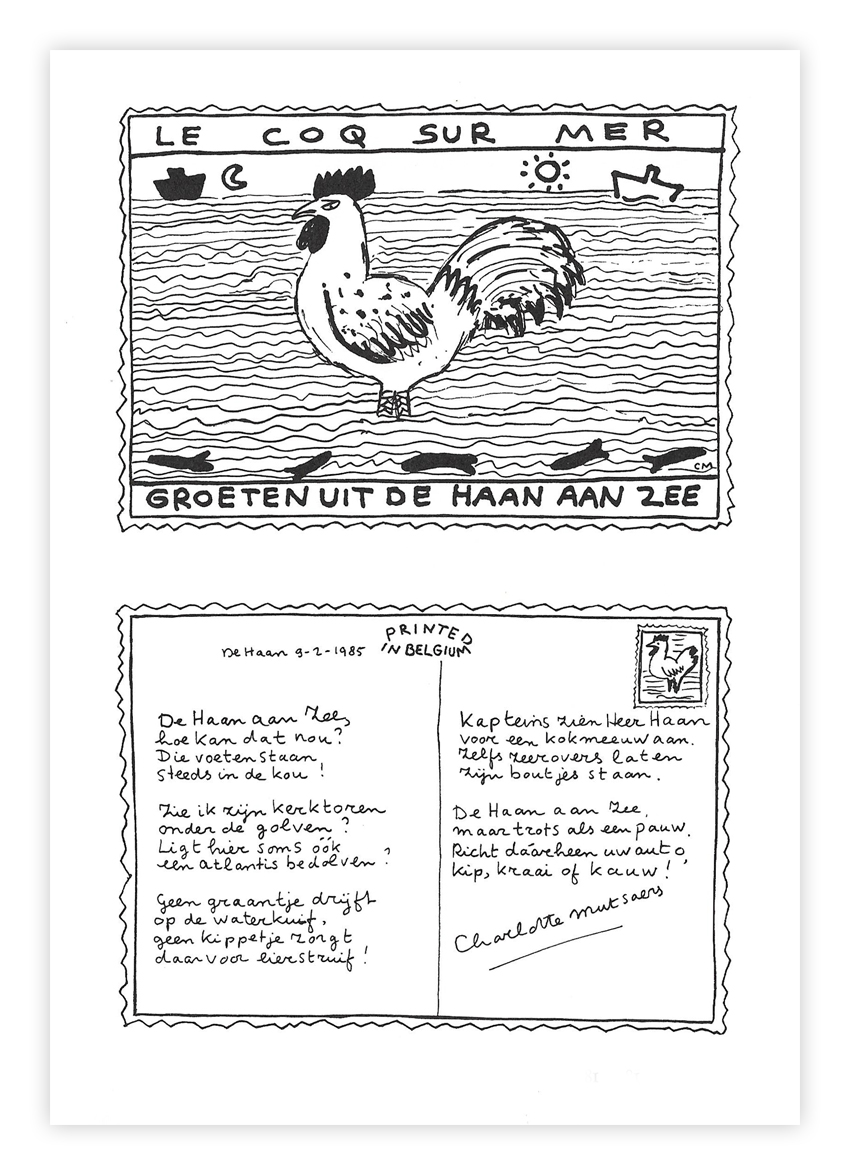 LE COQ SUR MER
CM
GROETEN UIT DE HAAN AAN ZEE
De Haan 9-2-1985
PRINTED
IN BELGIUM
De Haan aan Zee,
hoe kan dat nou?
Die voeten staan
steeds in de kou!
Zie ik zijn kerktoren
onder de golven?
Ligt hier soms óók
een atlantis bedolven?
Geen graantje drijft
op de waterkuif,
geen kippetje zorgt
daar voor eierstruif!
Kapteins zien Heer Haan
voor een kokmeeuw aan.
Zelfs zeerovers laten
zijn boutjes staan.
De Haan aan Zee,
maar trots als een pauw.
Richt dáárheen uw auto,
kip, kraai of kauw!
Charlotte Mutsaers